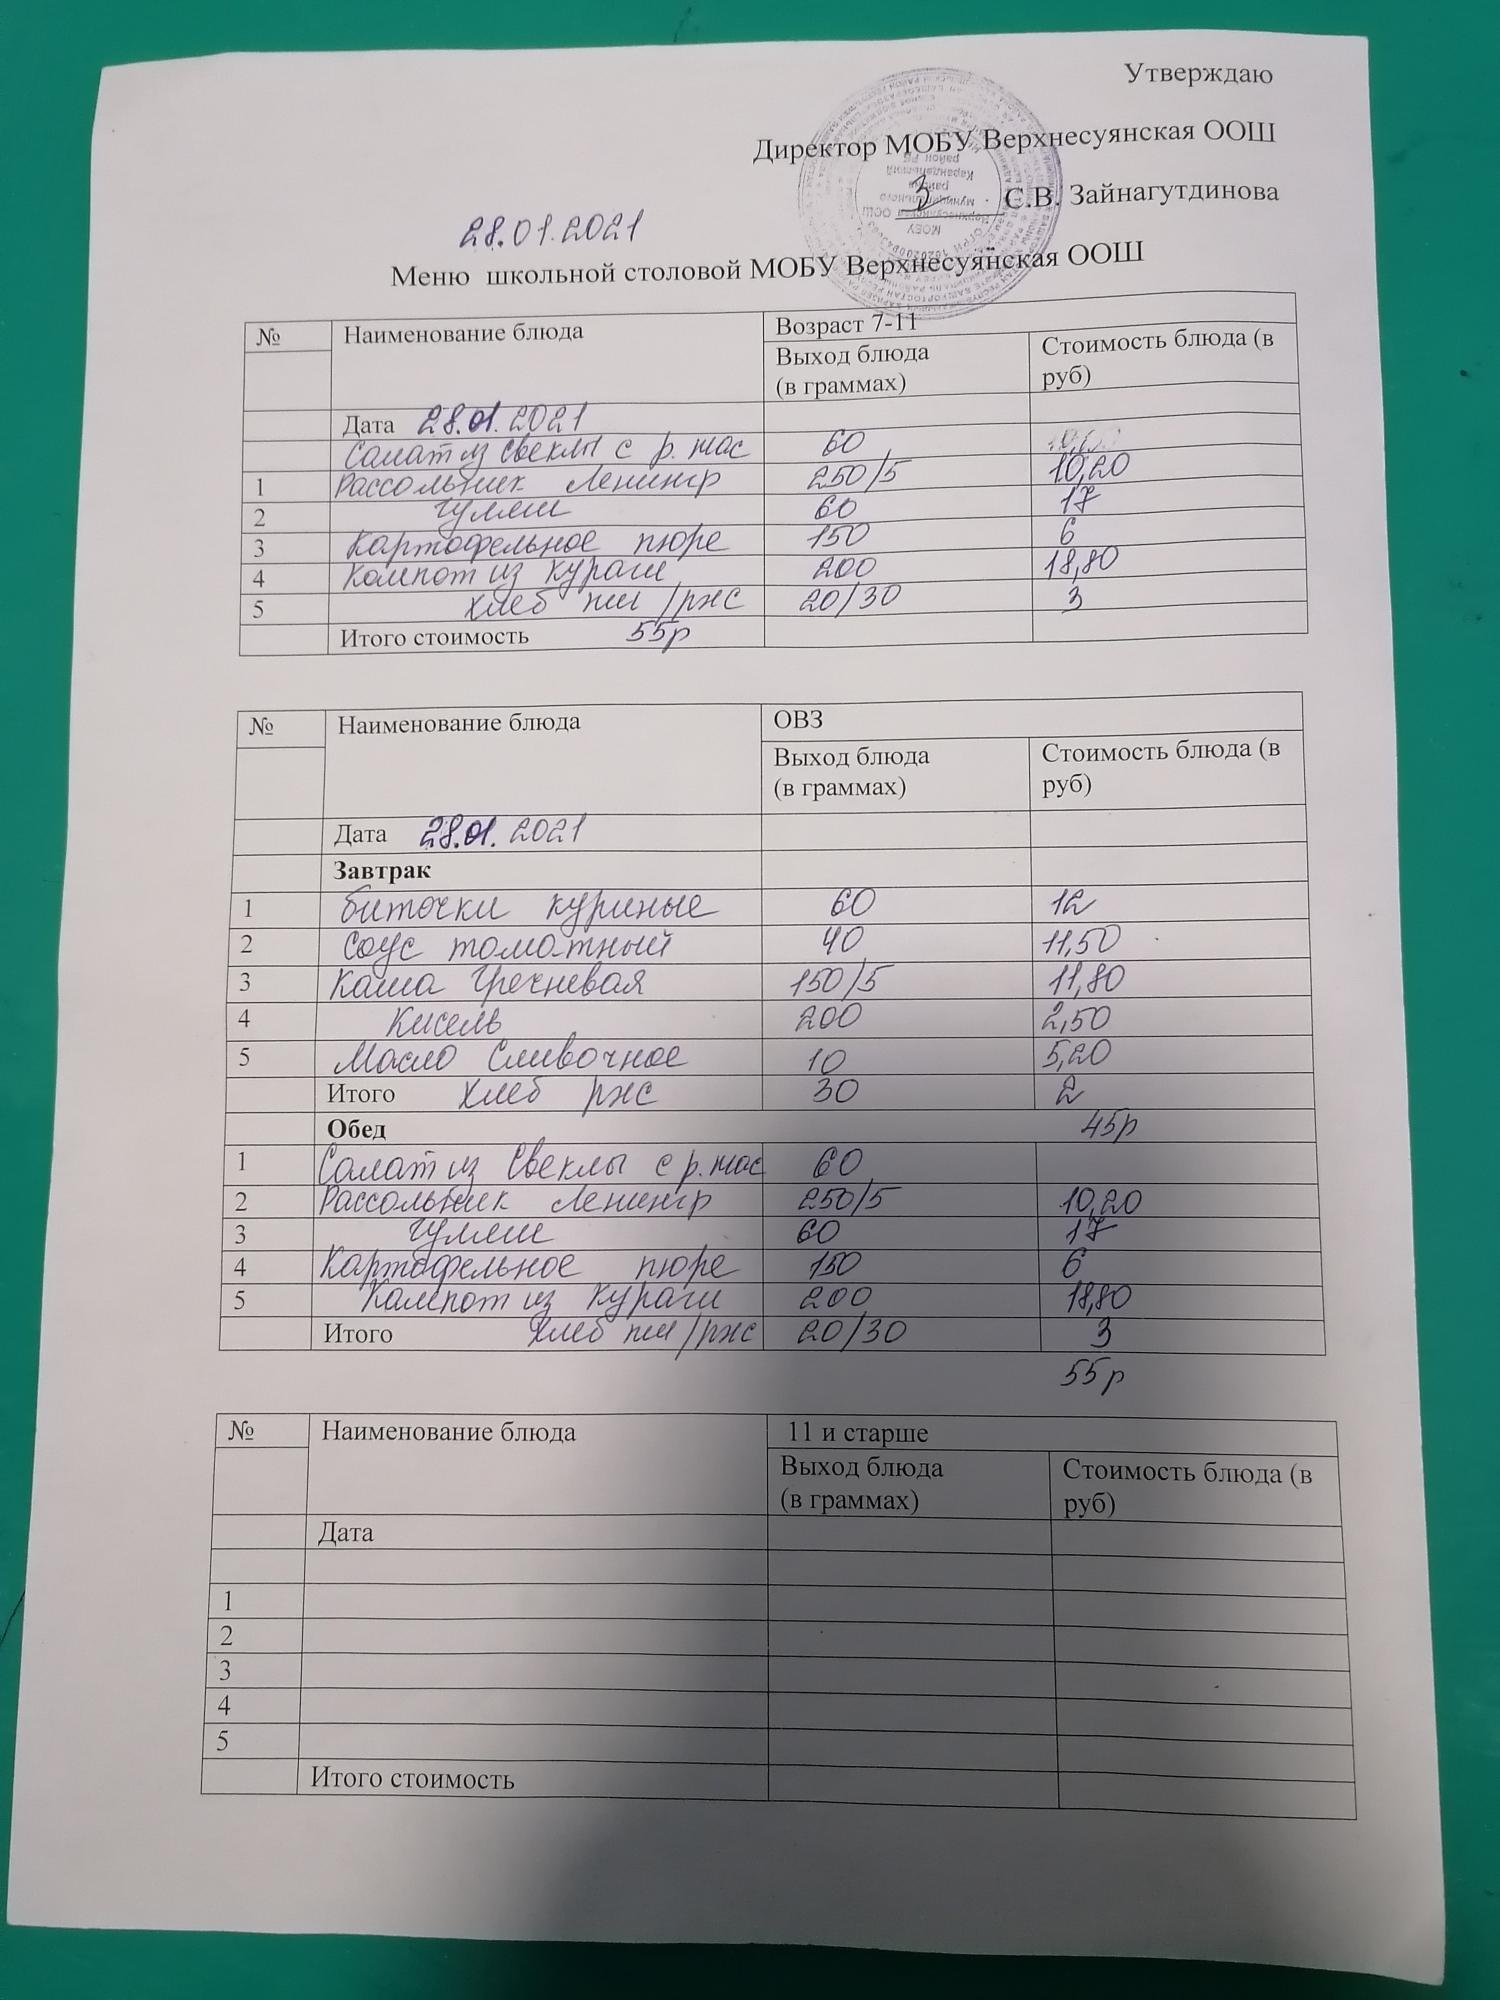 Утверждаю
Директор МОБУ Верхнесуянская ООШ
С.В. Зайнагутдинова
28.01.2021
Меню школьной столовой МОБУ Верхнесуянская ООШ
№ Наименование блюда Возраст 7-11
Выход блюда (в граммах) Стоимость блюда (в руб)
Дата 28.01.2021
Салат из свеклы с р. мас 60
1 Рассольник Ленингр 250/5 10,20
2 гуляш 60 17
3 Картофельное пюре 150 6
4 Компот из кураги 200 18,80
5 хлеб пш/рж 20/30 3
Итого стоимость 55р
№ Наименование блюда ОВЗ
Выход блюда (в граммах) Стоимость блюда (в руб)
Дата 28.01.2021
Завтрак
1 биточки куриные 60 12
2 Соус томатный 40 11,50
3 Каша гречневая 150/5 11,80
4 Кисель 200 2,50
5 Масло сливочное 10 5,20
Итого хлеб ржс 30 2
Обед 45р
1 Салат из свеклы с р. мас 60
2 Рассольник Ленингр 250/5 10,20
3 гуляш 60 17
4 Картофельное пюре 150 6
5 Компот из кураги 200 18,80
Итого хлеб пш/ржс 20/30 3
55р
№ Наименование блюда 11 и старше
Выход блюда (в граммах) Стоимость блюда (в руб)
Дата
1
2
3
4
5
Итого стоимость